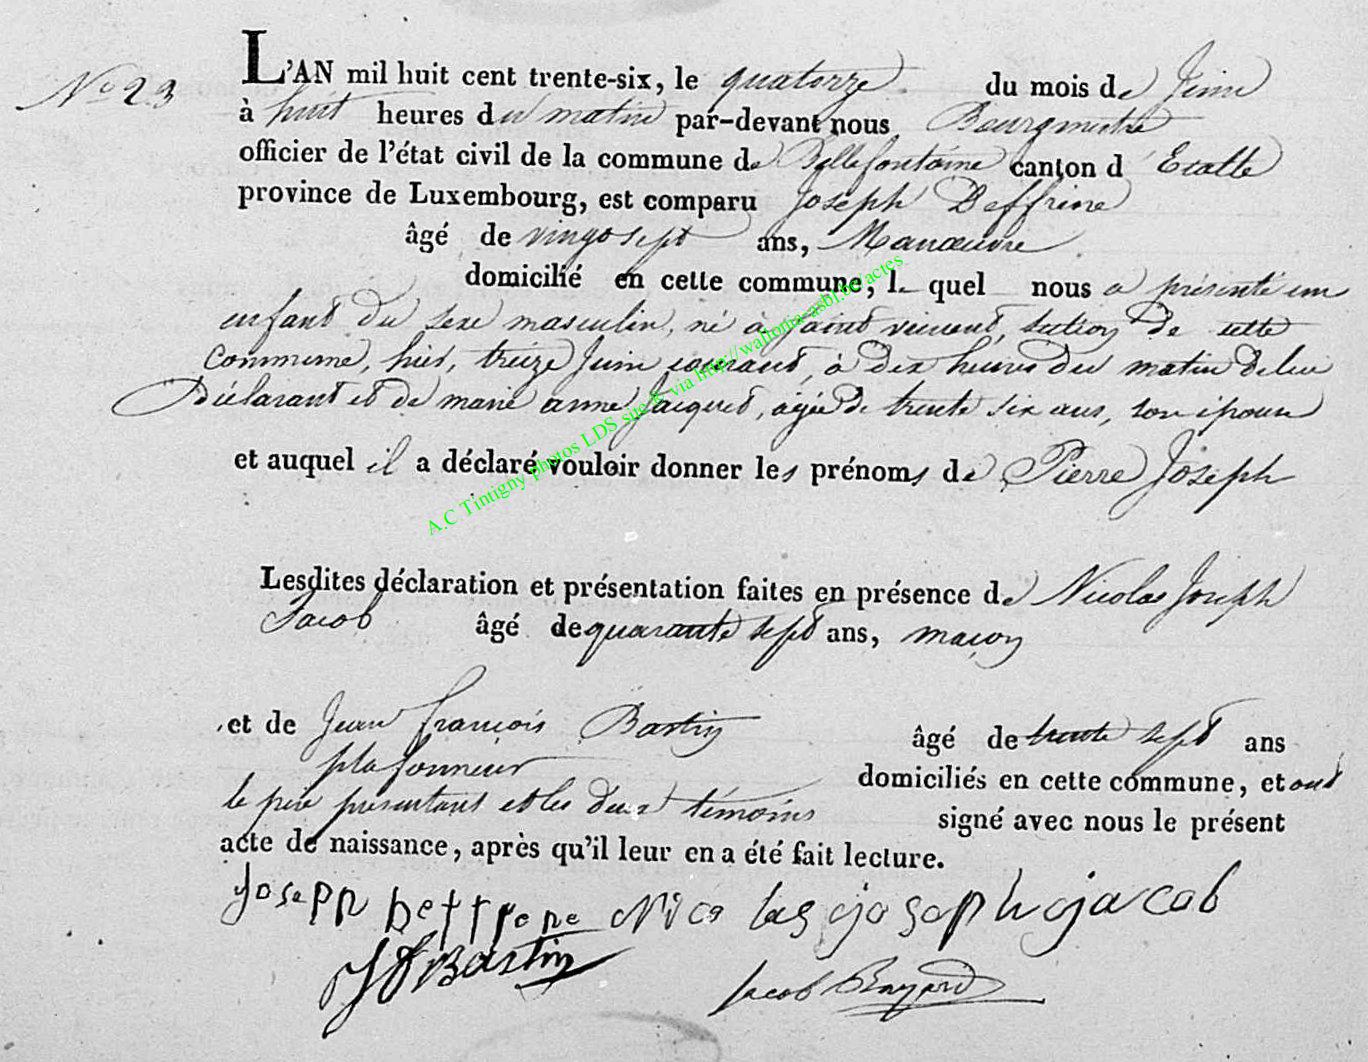 N° 23
L'AN mil huit cent trente-six, le quatorze du mois de Juin
à huit heures du matin par-devant nous Bourgmestre
officier de l'état civil de la commune de Bellefontaine canton d'Etalle
province de Luxembourg, est comparu Joseph Deffrene
âgé de vingt sept ans, Manœuvre
domicilié en cette commune, le quel nous a présenté un
enfant du sexe masculin, né à saint vincent, section de cette
Commune, hier, treize Juin courant, à dix heures du matin de lui
Déclarant et de marie anne Jacques, agée de trente six ans, son épouse
et auquel il a déclaré vouloir donner les prénoms de Pierre Joseph
Lesdites déclaration et présentation faites en présence de Nicolas Joseph
Jacob âgé de quarante sept ans, maçon
et de Jean françois Bastin âgé de trente sept ans
plafonneur domiciliés en cette commune, et ont
le père présentant et les deux témoins signé avec nous le présent
acte de naissance, après qu'il leur en a été fait lecture.
Joseph Deffrene Nicolas josoph jacob
JF Bastin Jacob
A.C Tintigny photos LDS site & via http://wallonia-asbl.be/actes